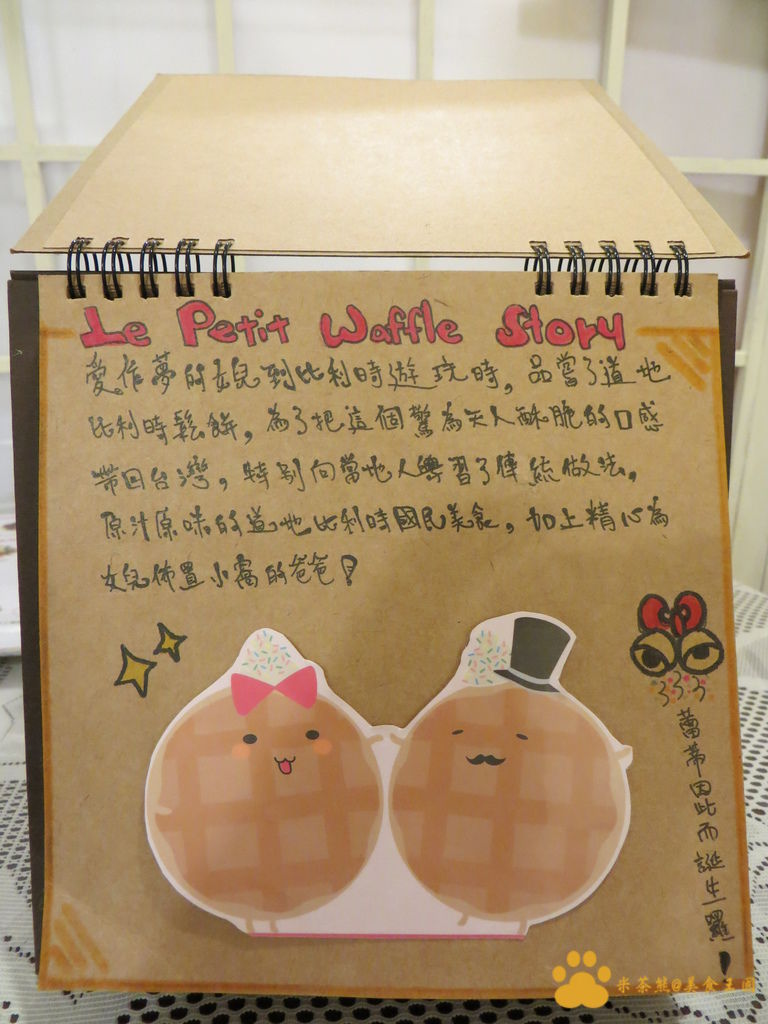 Le Petit Waffle Story
愛作夢的女兒到比利時遊玩時，品嘗了道地
比利時鬆餅，為了把這個驚為天人酥脆的口感
帶回台灣，特別向當地人學習了傳統做法。
原汁原味的道地比利時國民美食，加上精心為
女兒佈置小窩的爸爸！
蕾蒂因此而誕生囉！
米茶熊@美食王國